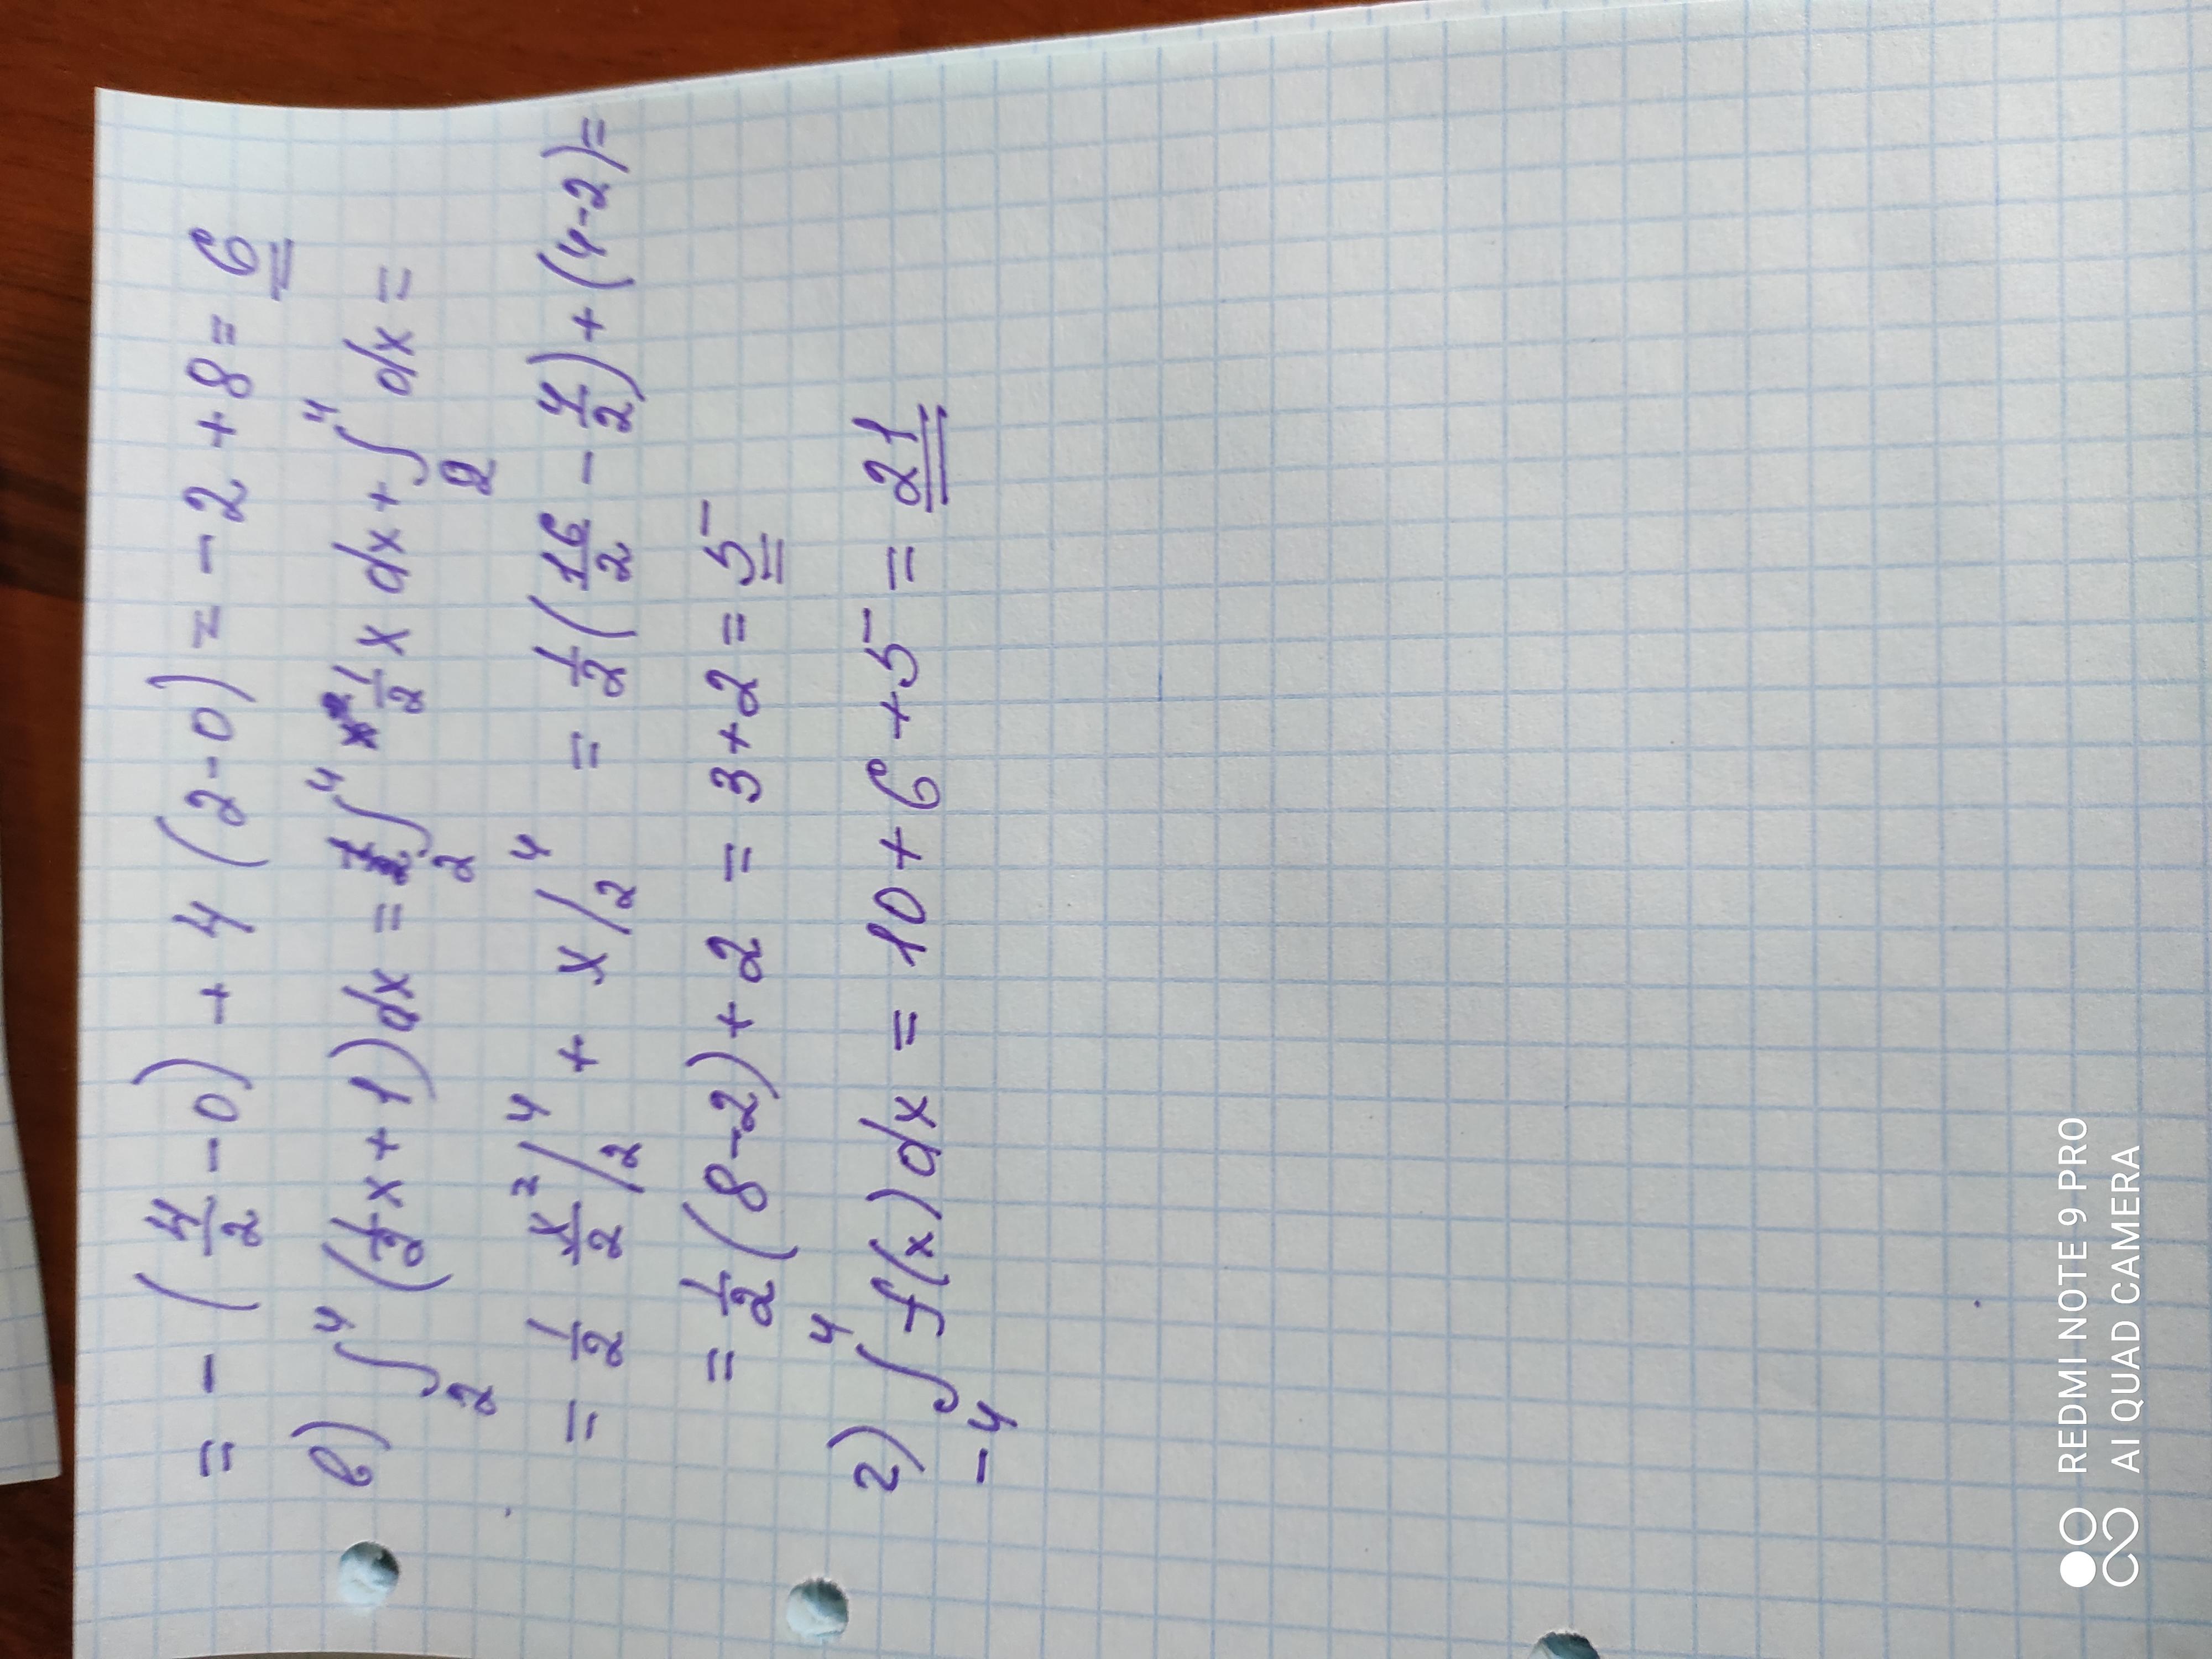 = - (4/2 - 0) + 4 (2-0) = -2 +8 = 6
в) ∫₂⁴ (1/2 x + 1) dx = ∫₂⁴ 1/2 x dx + ∫₂⁴ dx =
= 1/2 x²/2 /₂⁴ + x /₂⁴ = 1/2 (16/2 - 4/2) + (4-2) =
= 1/2 (8-2) + 2 = 3+2 = 5
г) ∫₋₄⁴ f(x) dx = 10 + 6 + 5 = 21
REDMI NOTE 9 PRO
AI QUAD CAMERA